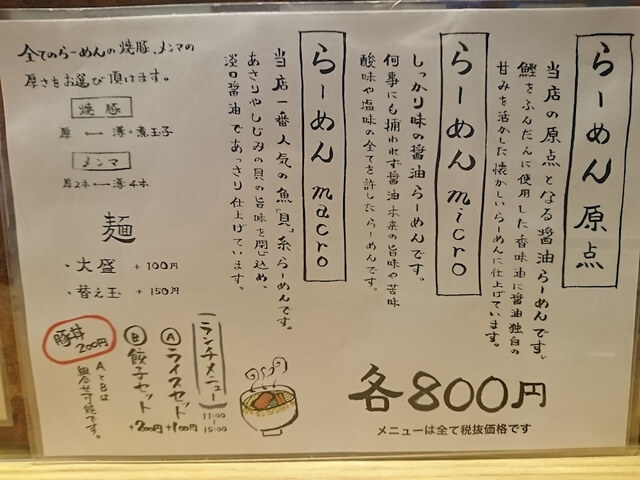 らーめん原点
当店の原点となる醤油らーめんです。
鰹をふんだんに使用した香味油に醤油独自の
甘みを活かした懐かしいらーめんに仕上げています。
らーめん micro
しっかり味の醤油らーめんです。
何事にも捕われず醤油本来の旨味や苦味
酸味や塩味の全てを許したらーめんです。
らーめん macro
当店一番人気の魚「貝」系らーめんです。
あさりやしじみの貝の旨味を閉じ込め、
淡口醤油であっさり仕上げています。
各800円
メニューは全て税抜価格です
全てのらーめんの焼豚、メンマの
厚さをお選び頂けます。
焼豚
厚 ⟷ 薄・煮玉子
メンマ
厚2本 ⟷ 薄4本
麺
・大盛 +100円
・替え玉 +150円
ランチメニュー
11:00
15:00
Ⓐライスセット +100円
Ⓑ餃子セット +200円
AとBは
組合せ可能です。
豚丼
200円